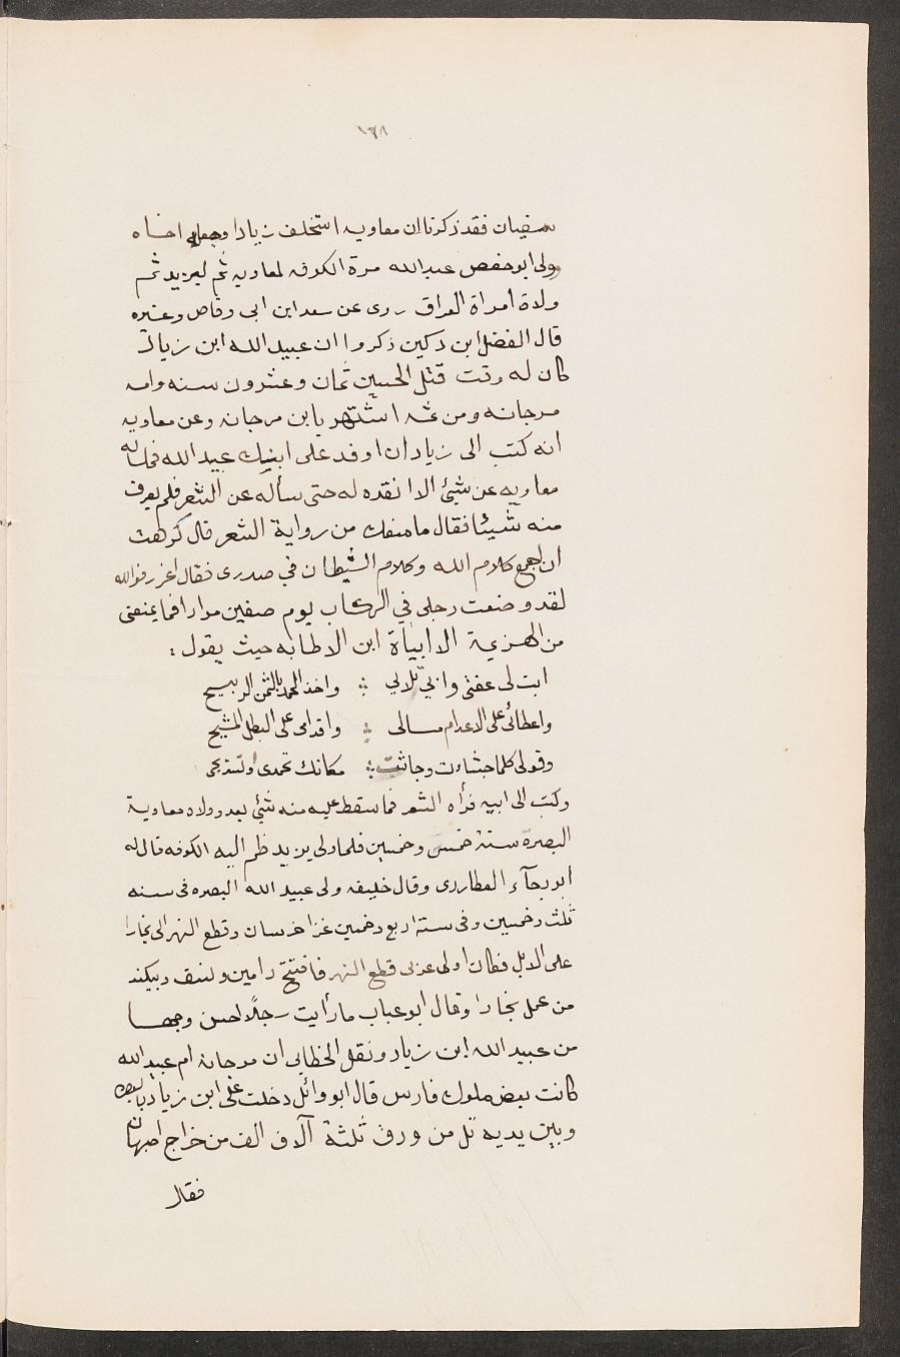 ١٣٨
سفيان فقد ذكرنا ان معاويه استخلف زيادا وجعله اخاه
وولى ابو حفص عبدالله مرة الكوفه لمعاويه ثم ليزيد ثم
ولاة امراة العراق روى عن سعد ابن ابى وقاص وغيره
قال الفضل ابن دكين ذكروا ان عبيد الله ابن زياد
كان له وقت قتل الحسين ثمان وعشرون سنه وامه
مرجانه ومن ثمه اشتهر بابن مرجانه وعن معاويه
انه كتب الى زياد ان اوفد على ابنيك عبيد الله فما ساله
معاويه عن شيئ الا انقده له حتى سأله عن الشعر فلم يعرف
منه شيئا فقال ما منعك من رواية الشعر قال كرهت
ان اجمع كلام الله وكلام الشيطان في صدرى فقال اغرز فوالله
لقد وضعت رجلى في الركاب يوم صفين مرارا فما يمنعنى
من الهزيمة الا ابياة ابن الاطابه حيث يقول :
ابت لى عفتى وابي تلالي ∴ واخذ الحمد بالثمن الربيح
واعطائى على الاعدام مسالى ∴ واقدامى على البطل المشيح
وقولى كلما جشاءت وجاشت ∴ مكانك تحمدى او تستريحى
وكتب الى ابيه فرأه الشعر فما سقط عليه منه شئي بعد وولاه معاوية
البصرة سنة خمس وخمسين فلما ولى يزيد ضم اليه الكوفه قال له
ابو رجآء العطاردى وقال خليفه ولى عبيد الله البصره فى سنه
ثلث وخمسين وفى سنة اربع وخمسين غزا خرسان وقطع النهر الى بخارا
على الابل فكان اولى عربى قطع النهر فافتتح رامين ونسف وبيكند
من عمل بخارا وقال ابو عباب ما رأيت رجلًا احسن وجها
من عبيد الله ابن زياد ونقل الخطابى ان مرجانه ام عبيد الله
كانت بعض ملوك فارس قال ابو وائل دخلت على ابن زياد بالبصره
وبين يديه تل من ورق ثلثة آلاف الف من خراج اصبهان
فقال